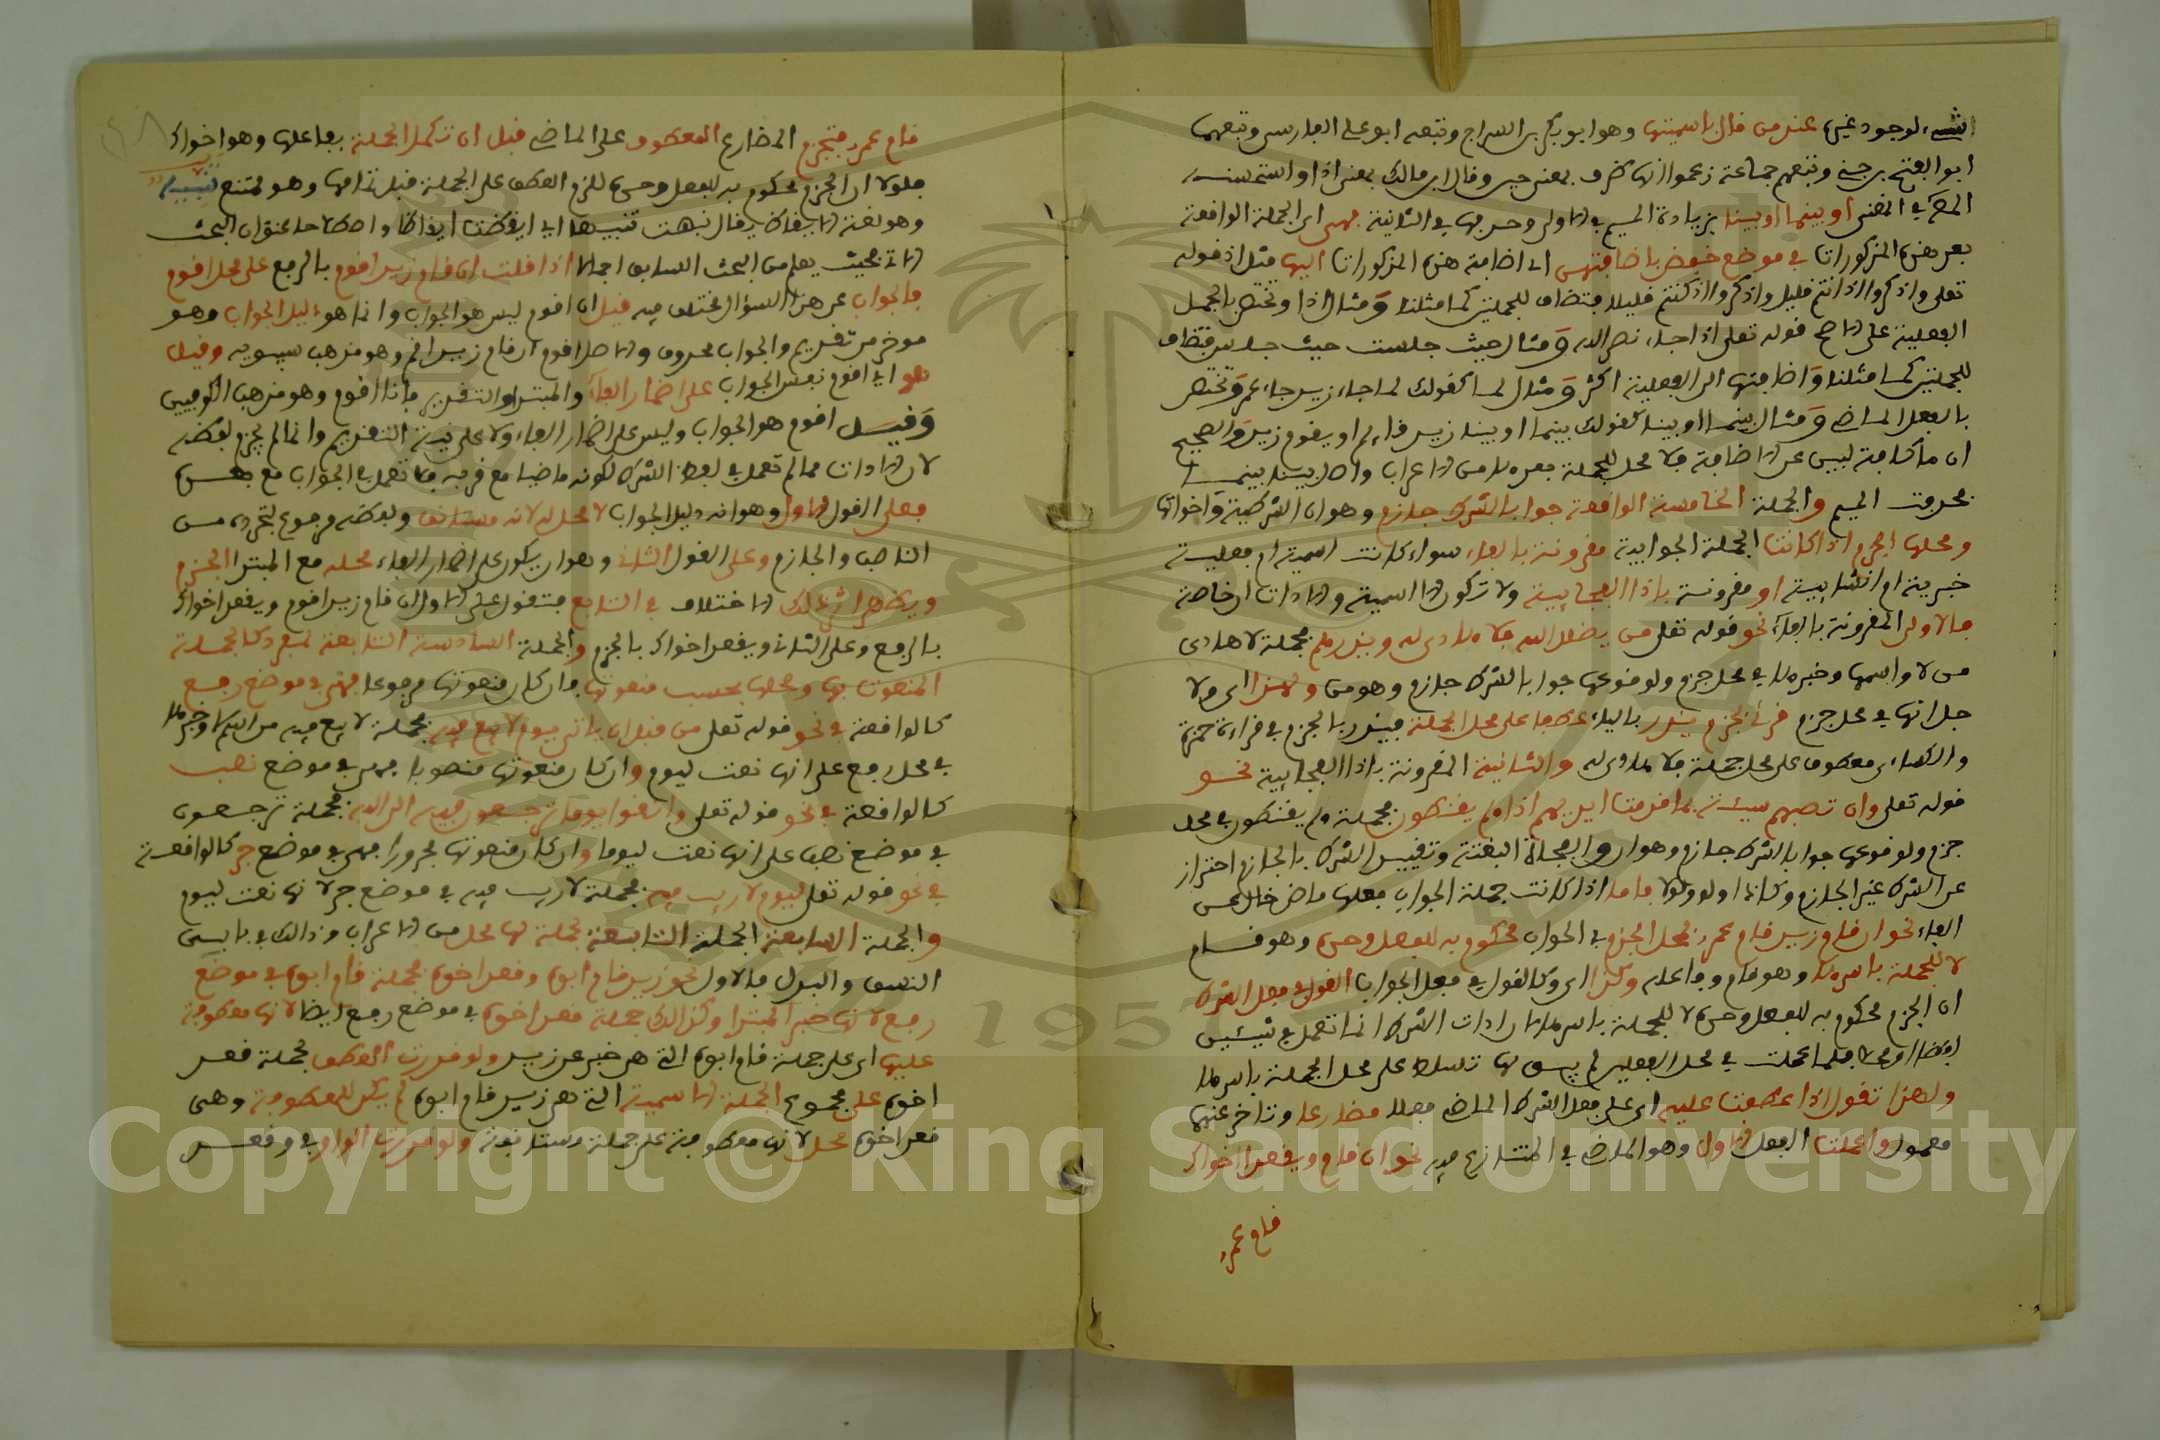 الشيء لوجود غيره عند من قال باسميتها وهو ابو بكر بن السراج وتبعه ابو علي الفارسي وتبعهما
ابو الفتح بن جني وتبعهم جماعة زعموا انها ظرف بمعنى حين وقال ابن مالك بمعنى اذ واستحسنه
المص في المغني او بينما او بينا بزيادة الميم في الاولى وحذفها في الثانية فهي اي الجملة الواقعة
بعد هذه المذكورات في موضع خفض باضافتهن اي اضافة هذه المذكورات اليها مثل اذ قوله
تعلى واذكروا اذ انتم قليل واذكروا اذ كنتم قليلا فتضاف للجملتين كما مثلنا ومثال اذا وتختص بالجمل
الفعلية على الاصح قوله تعلى اذا جاء نصر الله ومثال حيث جلست حيث جلس فتضاف
للجملتين كما مثلنا واضافتها الى الفعلية اكثر ومثال لما كقولك لما جاء زيد جاء عمرو وتختص
بالفعل الماضي ومثال بينما او بينا كقولك بينما او بينا زيد قائم او يقوم زيد والصحيح
ان ما كافة لبين عن الاضافة فلا محل للجملة بعدها من الاعراب واصل بينا بينما
فحذفت الميم والجملة الخامسة الواقعة جوابا لشرط جازم وهو ان الشرطية واخواتها
ومحلها الجزم اذا كانت الجملة الجوابية مقرونة بالفاء سواء كانت اسمية ام فعلية
خبرية ام انشايية او مقرونة باذا الفجايية ولا تكون الا اسمية والاداة ان خاصة
فالاولى المقرونة بالفاء نحو قوله تعلى من يضلل الله فلا هادي له ويذرهم فجملة لا هادي
من لا واسمها وخبرها في محل جزم لوقوعها جوابا لشرط جازم وهو من ولهذا اي ولا
جل انها في محل جزم قرئ بجزم يذر بالياء عطفا على محل الجملة فيذر بالجزم في قراءة حمزة
والكساءي معطوف على محل جملة فلا هادي له والثانية المقرونة باذا الفجايية نحو
قوله تعلى وان تصبهم سيئة بما قدمت ايديهم اذا هم يقنطون فجملة هم يقنطون في محل
جزم لوقوعها جوابا لشرط جازم وهو ان والفجاة البغتة وتقييد الشرط بالجازم احتراز
عن الشرط غير الجازم وكاذا ولو ولولا فاما اذا كانت جملة الجواب فعلها ماض خال من
الفاء نحو ان قام زيد قام عمرو فمحل الجزم في الجواب محكوم به للفعل وحده وهو قام
لا للجملة باسرها وهو قام وفاعله وكذا اي وكالقول في فعل الجواب القول في فعل الشرط
ان الجزم محكوم به للفعل وحده لا للجملة باسرها لان ادات الشرط انما تعمل في شيئين
لفظا او محلا فلما عملت في محل الفعلين لم يبق لها تسلط على محل الجملة باسرها
ولهذا تقول اذا عطفت عليه اي على فعل الشرط الماضي فعلا مضارعا وتاخر عنهما
معمول واعملت الفعل الاول وهو الماضي في المتنازع فيه نحو ان قام ويقعد اخواك
قام عمرو
قام عمرو فتجزم المضارع المعطوف على الماضي قبل ان تكمل الجملة بفاعلها وهو اخواك
فلولا ان الجزم محكوم به للفعل وحده للزم العطف على الجملة قبل تمامها وهو ممتنع تنبيه
وهو لغة الايقاظ يقال نبهت تنبيها اي ايقظت ايقاظا واصطلاحا عنوان البحث
الاتي بحيث يعلم من البحث السابق اجمالا اذا قلت ان قام زيد اقوم بالرفع على محل اقوم
فالجواب عن هذا السؤال مختلف فيه قيل ان اقوم ليس هو الجواب وانما هو دليل الجواب وهو
موخر من تقديم والجواب محذوف والاصل اقوم ان قام زيد اقم وهو مذهب سيبويه وقيل
هو اي اقوم نفس الجواب على اضمار الفاء والمبتدا والتقدير فانا اقوم وهو مذهب الكوفيين
وقيل اقوم هو الجواب وليس على اضمار الفاء ولا على نية التقديم وانما لم يجزم لفظه
لان الادات لما لم تعمل في لفظ الشرط لكونه ماضيا مع قربه فلا تعمل في الجواب مع بعده
فعلى القول الاول وهو انه دليل الجواب لا محل له لانه مستانف ولفظه مرفوع لتجرده من
الناصب والجازم وعلى القول الثاني وهو ان يكون على اضمار الفاء محله مع المبتدا الجزم
ويظهر اثر ذلك الاختلاف في التابع فتقول على الاول ان قام زيد اقوم ويقعد اخواك
بالرفع وعلى الثاني ويقعد اخواك بالجزم والجملة السادسة التابعة لمفرد كالجملة
المنعوت بها ومحلها بحسب منعوتها فان كان منعوتها مرفوعا فهي في موضع رفع
كالواقعة في نحو قوله تعلى من قبل ان ياتي يوم لا بيع فيه فجملة لا بيع فيه من اسم لا وخبرها
في محل رفع على انها نعت ليوم وان كان منعوتها منصوبا فهي في موضع نصب
كالواقعة في نحو قوله تعلى واتقوا يوما ترجعون فيه الى الله فجملة ترجعون
في موضع نصب على انها نعت ليوما وان كان منعوتها مجرورا فهي في موضع جر كالواقعة
في نحو قوله تعلى ليوم لا ريب فيه فجملة لا ريب فيه في موضع جر لانها نعت ليوم
والجملة السابعة الجملة التابعة لجملة لها محل من الاعراب وذالك في بابي
النسق والبدل فالاول نحو زيد قام ابوه وقعد اخوه فجملة قام ابوه في موضع
رفع لانها خبر المبتدا وكذالك جملة قعد اخوه في موضع رفع ايضا لانها معطوفة
عليها اي على جملة قام ابوه التي هي خبر عن زيد ولو قدرت العطف لجملة قعد
اخوه على مجموع الجملة الاسمية التي هي زيد قام ابوه لم يكن للمعطوفة وهي
قعد اخوه محل لانها معطوفة على جملة مستانفة ولو قدرت الواو في وقعد
Copyright © King Saud University
1957